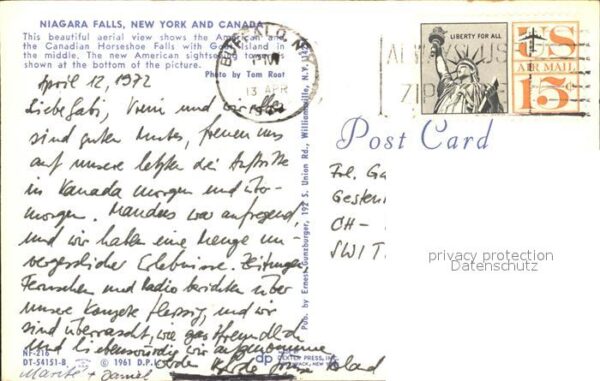 NIAGARA FALLS, NEW YORK AND CANADA
This beautiful aerial view shows the American and
the Canadian Horseshoe Falls with Goat Island in
the middle. The new American sightseeing tower
shown at the bottom of the picture.
Photo by Tom Root
BUFFALO, N.Y.
13 APR
LIBERTY FOR ALL
US
AIR MAIL
15¢
ALWAYS USE
ZIP
April 12, 1972
Liebe Gabi, Vreni und wir alle
sind guten Mutes, freuen uns
auf unsere letzten drei Auftritte
in Kanada morgen und über-
morgen. Manches war aufregend,
und wir haben eine Menge un-
vergesslicher Erlebnisse. Zeitungen,
Fernsehen und Radio berichten über
unsere Konzerte fleissig, und wir
sind überrascht, wie gastfreundlich
und liebenswürdig wir aufgenommen
Post Card
Frl. Ga
Gesten
CH -
SWIT
privacy protection
Datenschutz
Pub. by Ernest Gunzburger, 192 S. Union Rd., Williamsville, N.Y. 14221
NF-216
DT-54151-B
© 1961 D.P.I.
dp
DEXTER PRESS, INC.
WEST NYACK, NEW YORK
+ Daniel